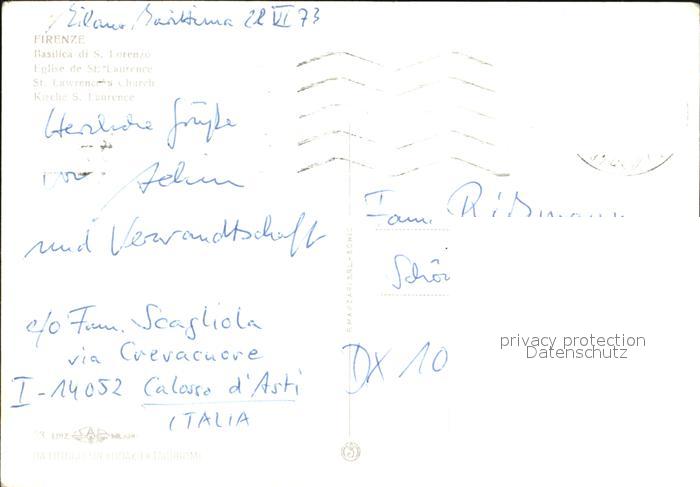 Milano Marittima 22 VI 73
FIRENZE
Basilica di S. Lorenzo
Eglise de St. Laurence
St. Lawrence's Church
Kirche S. Laurence
Herzliche Grüße
von Achim
und Verwandtschaft
c/o Fam. Scagliola
via Crevacuore
I-14052 Calosso d'Asti
ITALIA
Fam.
Schön
DX 10
privacy protection
Datenschutz
SAF
MILANO